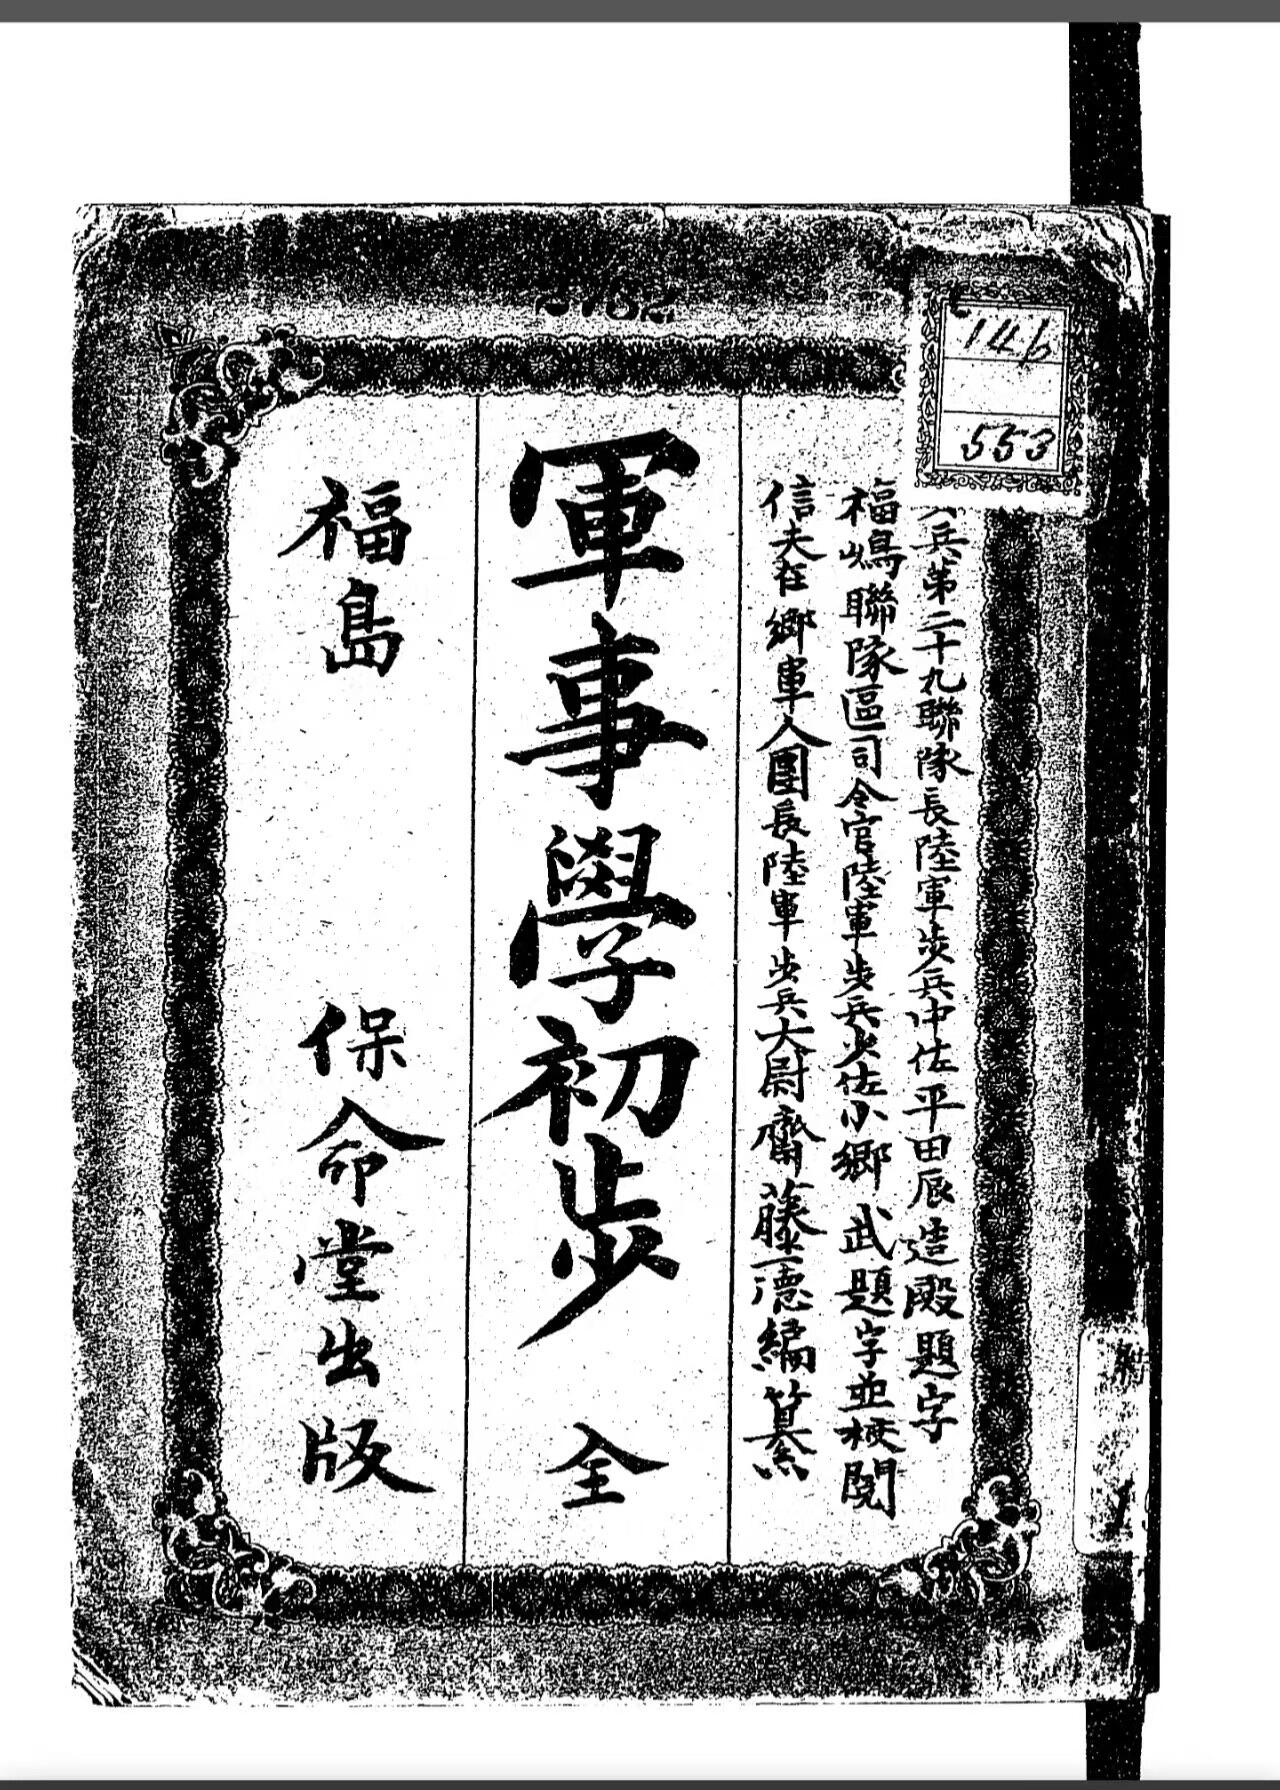 146
553
兵第二十九聯隊長陸軍歩兵中佐平田辰造殿題字
福嶋聯隊區司令官陸軍歩兵少佐小郷武題字並校閲
信夫在郷軍人團長陸軍歩兵大尉齋藤德編纂
軍事學初步 全
福島 保命堂出版